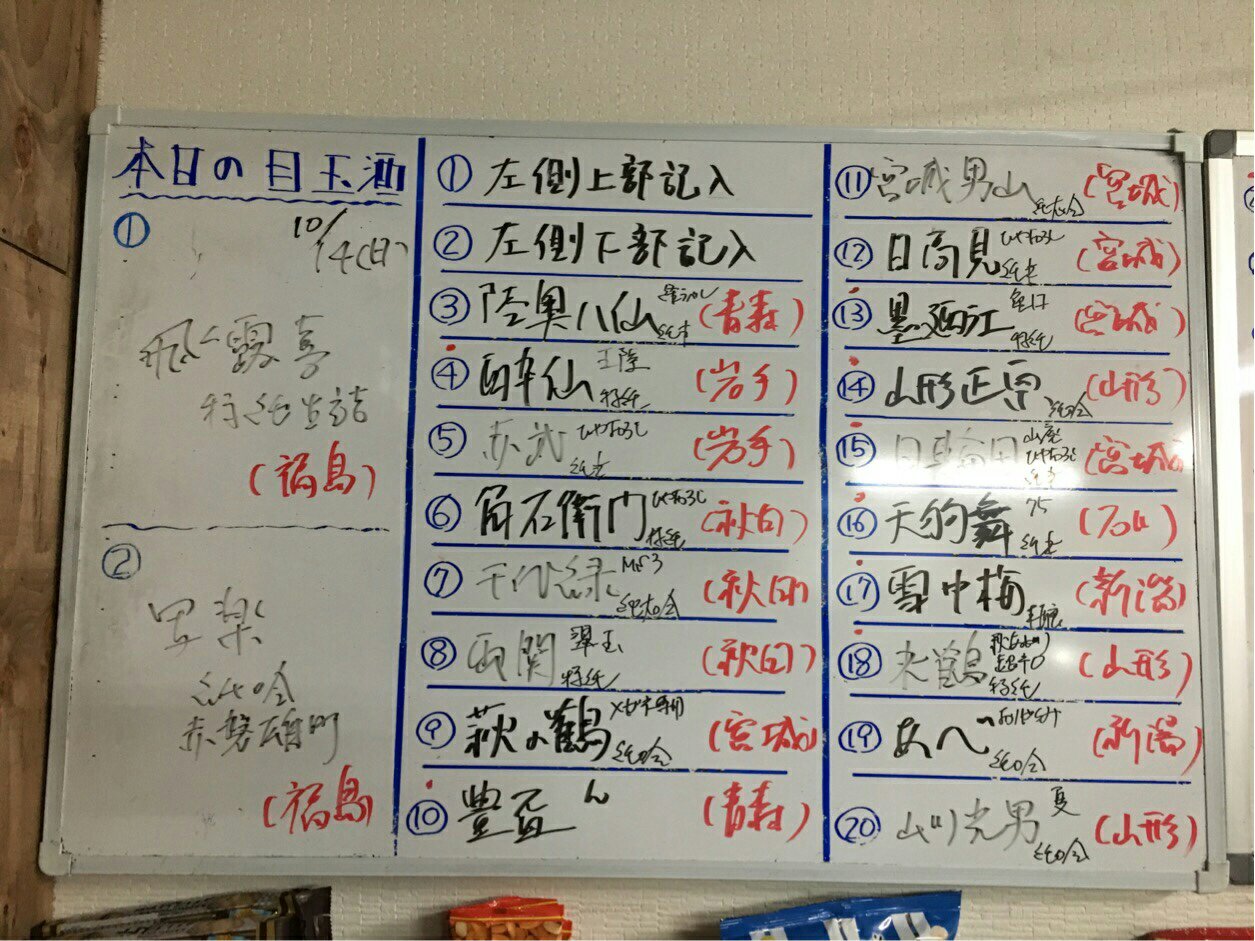 本日の目玉酒
①
10/
14(日)
飛露喜
特純生詰
(福島)
②
写楽
純吟
赤磐雄町
(福島)
① 左側上部記入
② 左側下部記入
③ 陸奥八仙 (青森)
④ 酔仙 特純 (岩手)
⑤ 赤武 ひやおろし (岩手)
⑥ 角右衛門 ひやおろし 特純 (秋田)
⑦ 千代緑 MS3 純大吟 (秋田)
⑧ 両関 翠玉 特純 (秋田)
⑨ 萩の鶴 メガネ専用 純吟 (宮城)
⑩ 豊盃 ん (青森)
⑪ 宮城男山 純大吟 (宮城)
⑫ 日高見 ひやおろし 純吟 (宮城)
⑬ 墨廼江 特純 (宮城)
⑭ 山形正宗 純吟 (山形)
⑮ 日輪田 山廃 ひやおろし (宮城)
⑯ 天狗舞 (石川)
⑰ 雪中梅 本醸 (新潟)
⑱ 米鶴 超辛口 特純 (山形)
⑲ あべ 純吟 (新潟)
⑳ 山川光男 夏 純吟 (山形)